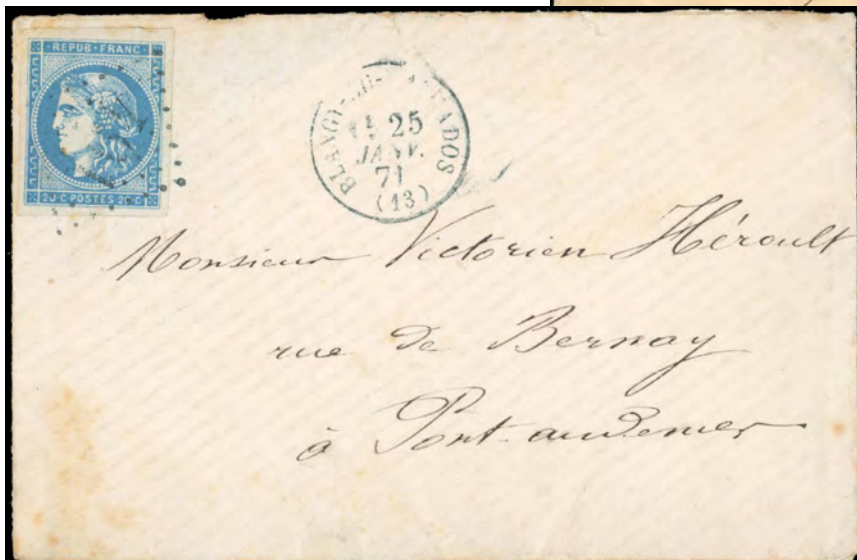 REPUB·FRANC·
20 C·POSTES 20 C·
25
JANV.
71
(13)
Monsieur Victorien Héroult
rue de Bernay
à Pont-audemer